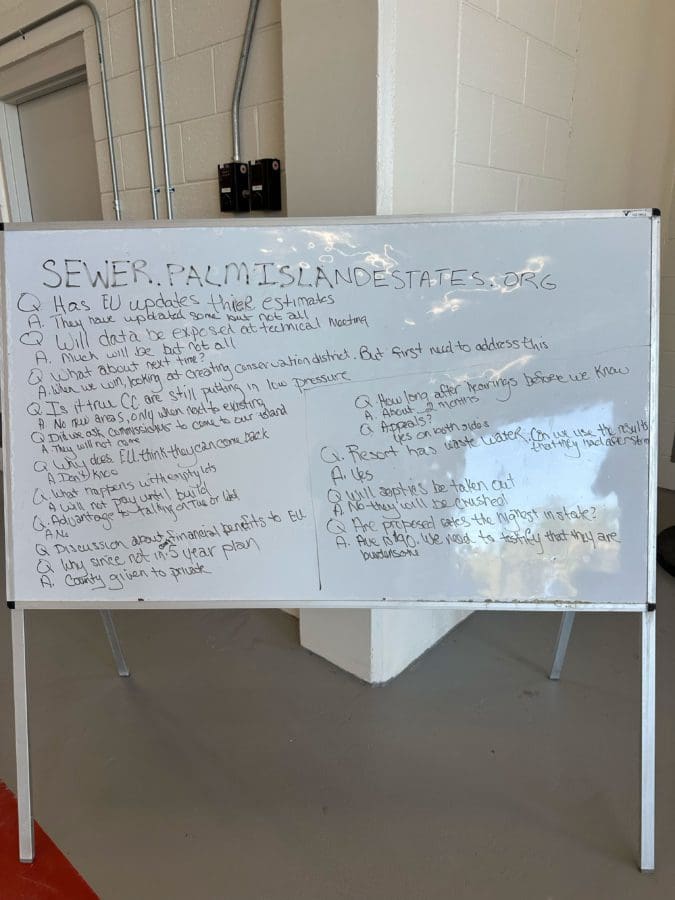 SEWER.PALMISLANDESTATES.ORG
Q Has EU updates thier estimates
A. They have updated some but not all
Q Will data be exposed at technical meeting
A. Much will be but not all
Q What about next time?
A. When we win, looking at creating conservation district. But first need to address this
Q Is it true CC are still putting in low pressure
A No new areas, only when next to existing
Q Did we ask commissioners to come to our island
A They will not come
Q Why does EU think they can come back
A. Don't know
Q. What happens with empty lots
A Will not pay until build
Q. Advantage to talking on Tues or Wed
A No
Q Discussion about financial benefits to EU
Q Why since not in 5 year plan
A. County given to private
Q. How long after hearings before we know
A. About 2 months
Q. Appeals?
Yes on both sides
Q. Resort has waste water. Can we use the results
that they had after storm
A. Yes
Q Will septics be taken out
A No they will be crushed
Q Are proposed rates the highest in state?
A. Ave is We need to testify that they are
burdensome